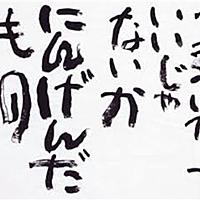 いいじゃ
ないか
にんげんだ
もの